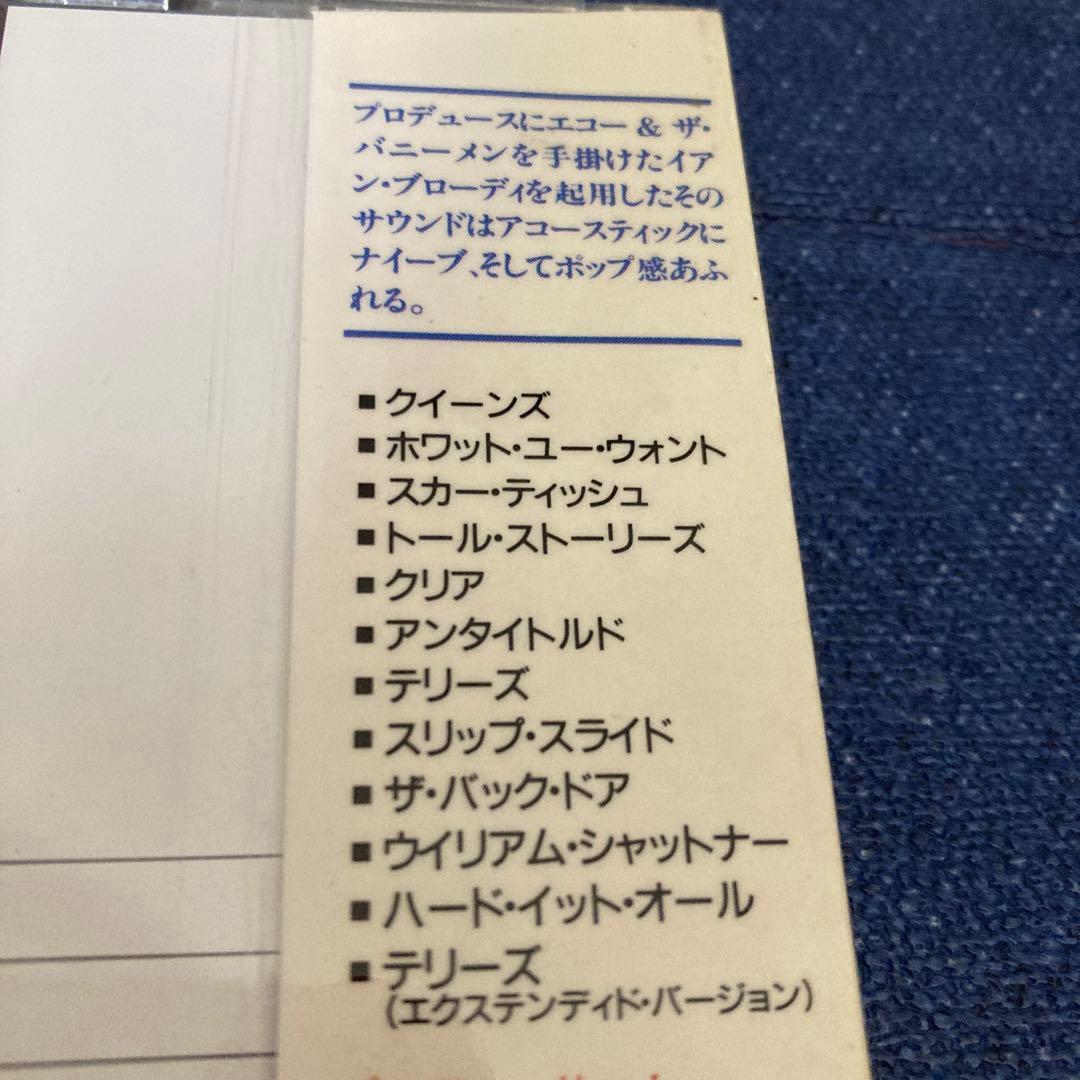 プロデュースにエコー & ザ・
バニーメンを手掛けたイア
ン・ブローディを起用したその
サウンドはアコースティックに
ナイーブ、そしてポップ感あふ
れる。
■クイーンズ
■ホワット・ユー・ウォント
■スカー・ティッシュ
■トール・ストーリーズ
■クリア
■アンタイトルド
■テリーズ
■スリップ・スライド
■ザ・バック・ドア
■ウイリアム・シャットナー
■ハード・イット・オール
■テリーズ
(エクステンディド・バージョン)